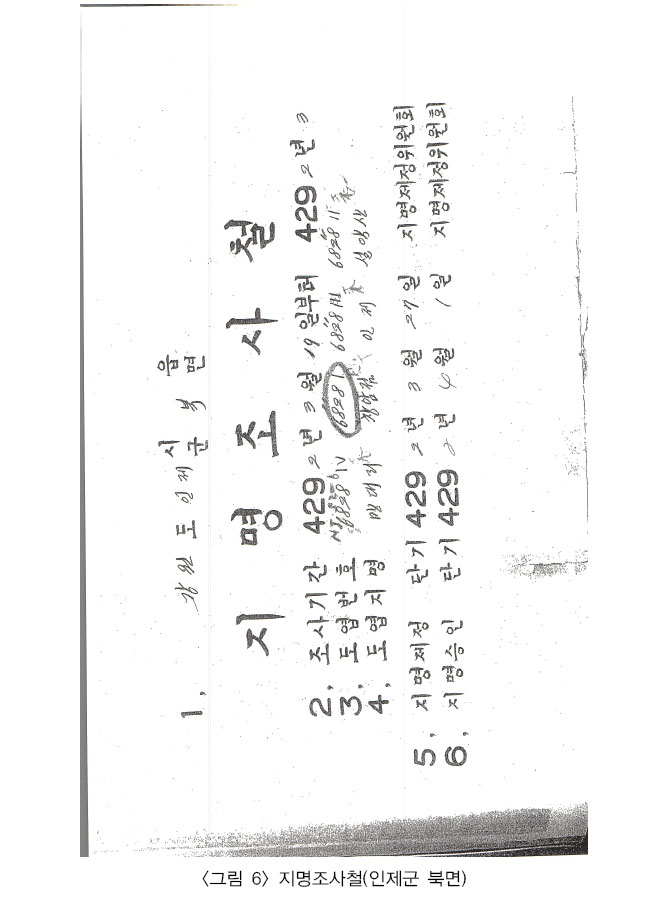 1, 강원도 인제 시군 북 읍면
지명조사철
2, 조사기간 4292년 3월 19일부터 4292년 3
3, 도엽번호 6828 IV 6828 I 6828 III 6828 II
4, 도엽지명 인제 설악산
5, 지명제정 단기 4292년 3월 27일 지명제정위원회
6, 지명승인 단기 4292년 4월 1일 지명제정위원회
〈그림 6〉 지명조사철(인제군 북면)